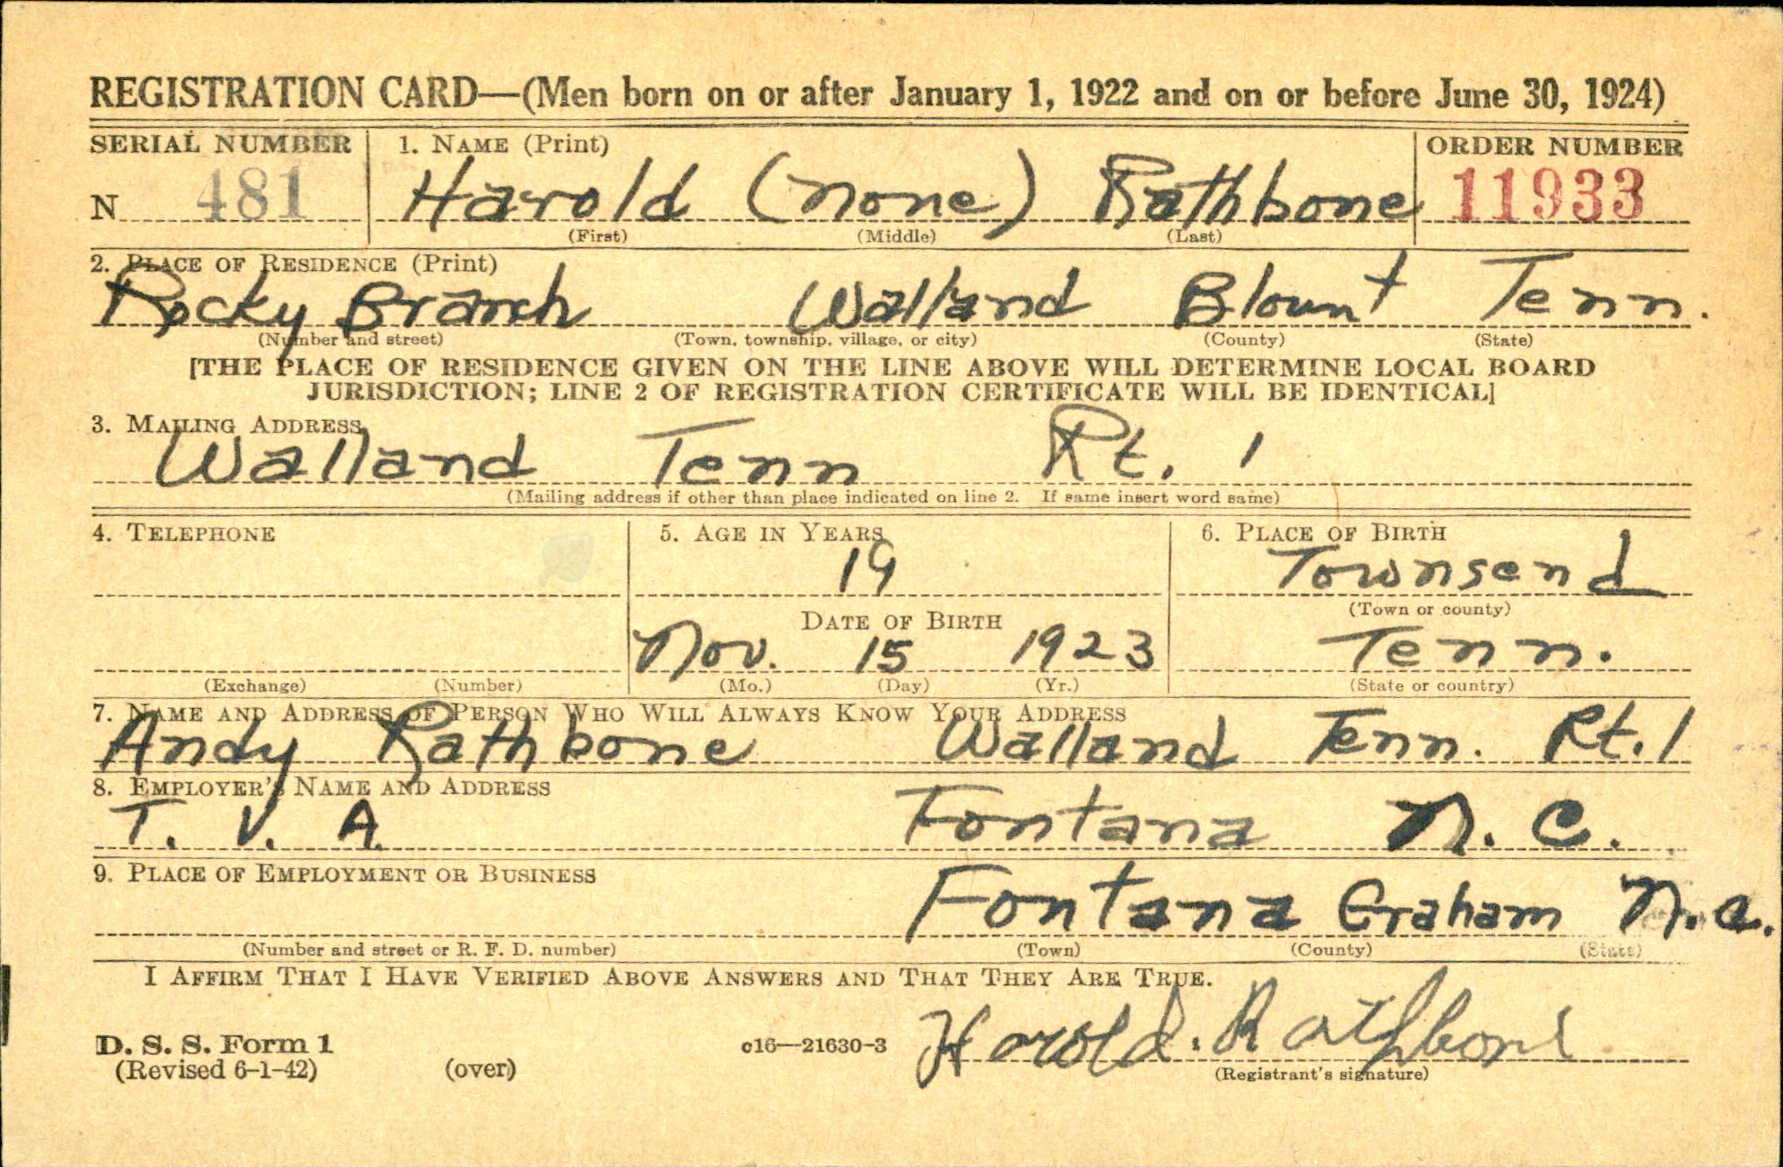 REGISTRATION CARD—(Men born on or after January 1, 1922 and on or before June 30, 1924)
SERIAL NUMBER 1. NAME (Print) ORDER NUMBER
N 481 Harold (none) Rathbone 11933
(First) (Middle) (Last)
2. PLACE OF RESIDENCE (Print)
Rocky Branch Walland Blount Tenn.
(Number and street) (Town, township, village, or city) (County) (State)
[THE PLACE OF RESIDENCE GIVEN ON THE LINE ABOVE WILL DETERMINE LOCAL BOARD
JURISDICTION; LINE 2 OF REGISTRATION CERTIFICATE WILL BE IDENTICAL]
3. MAILING ADDRESS
Walland Tenn Rt. 1
(Mailing address if other than place indicated on line 2. If same insert word same)
4. TELEPHONE 5. AGE IN YEARS 6. PLACE OF BIRTH
19 Townsend
(Town or county)
DATE OF BIRTH
Nov. 15 1923 Tenn.
(Exchange) (Number) (Mo.) (Day) (Yr.) (State or country)
7. NAME AND ADDRESS OF PERSON WHO WILL ALWAYS KNOW YOUR ADDRESS
Andy Rathbone Walland Tenn. Rt. 1
8. EMPLOYER'S NAME AND ADDRESS
T. V. A. Fontana N. C.
9. PLACE OF EMPLOYMENT OR BUSINESS
Fontana Graham N.C.
(Number and street or R. F. D. number) (Town) (County) (State)
I AFFIRM THAT I HAVE VERIFIED ABOVE ANSWERS AND THAT THEY ARE TRUE.
D. S. S. Form 1 c16—21630-3 Harold. Rathbone
(Revised 6-1-42) (over) (Registrant's signature)